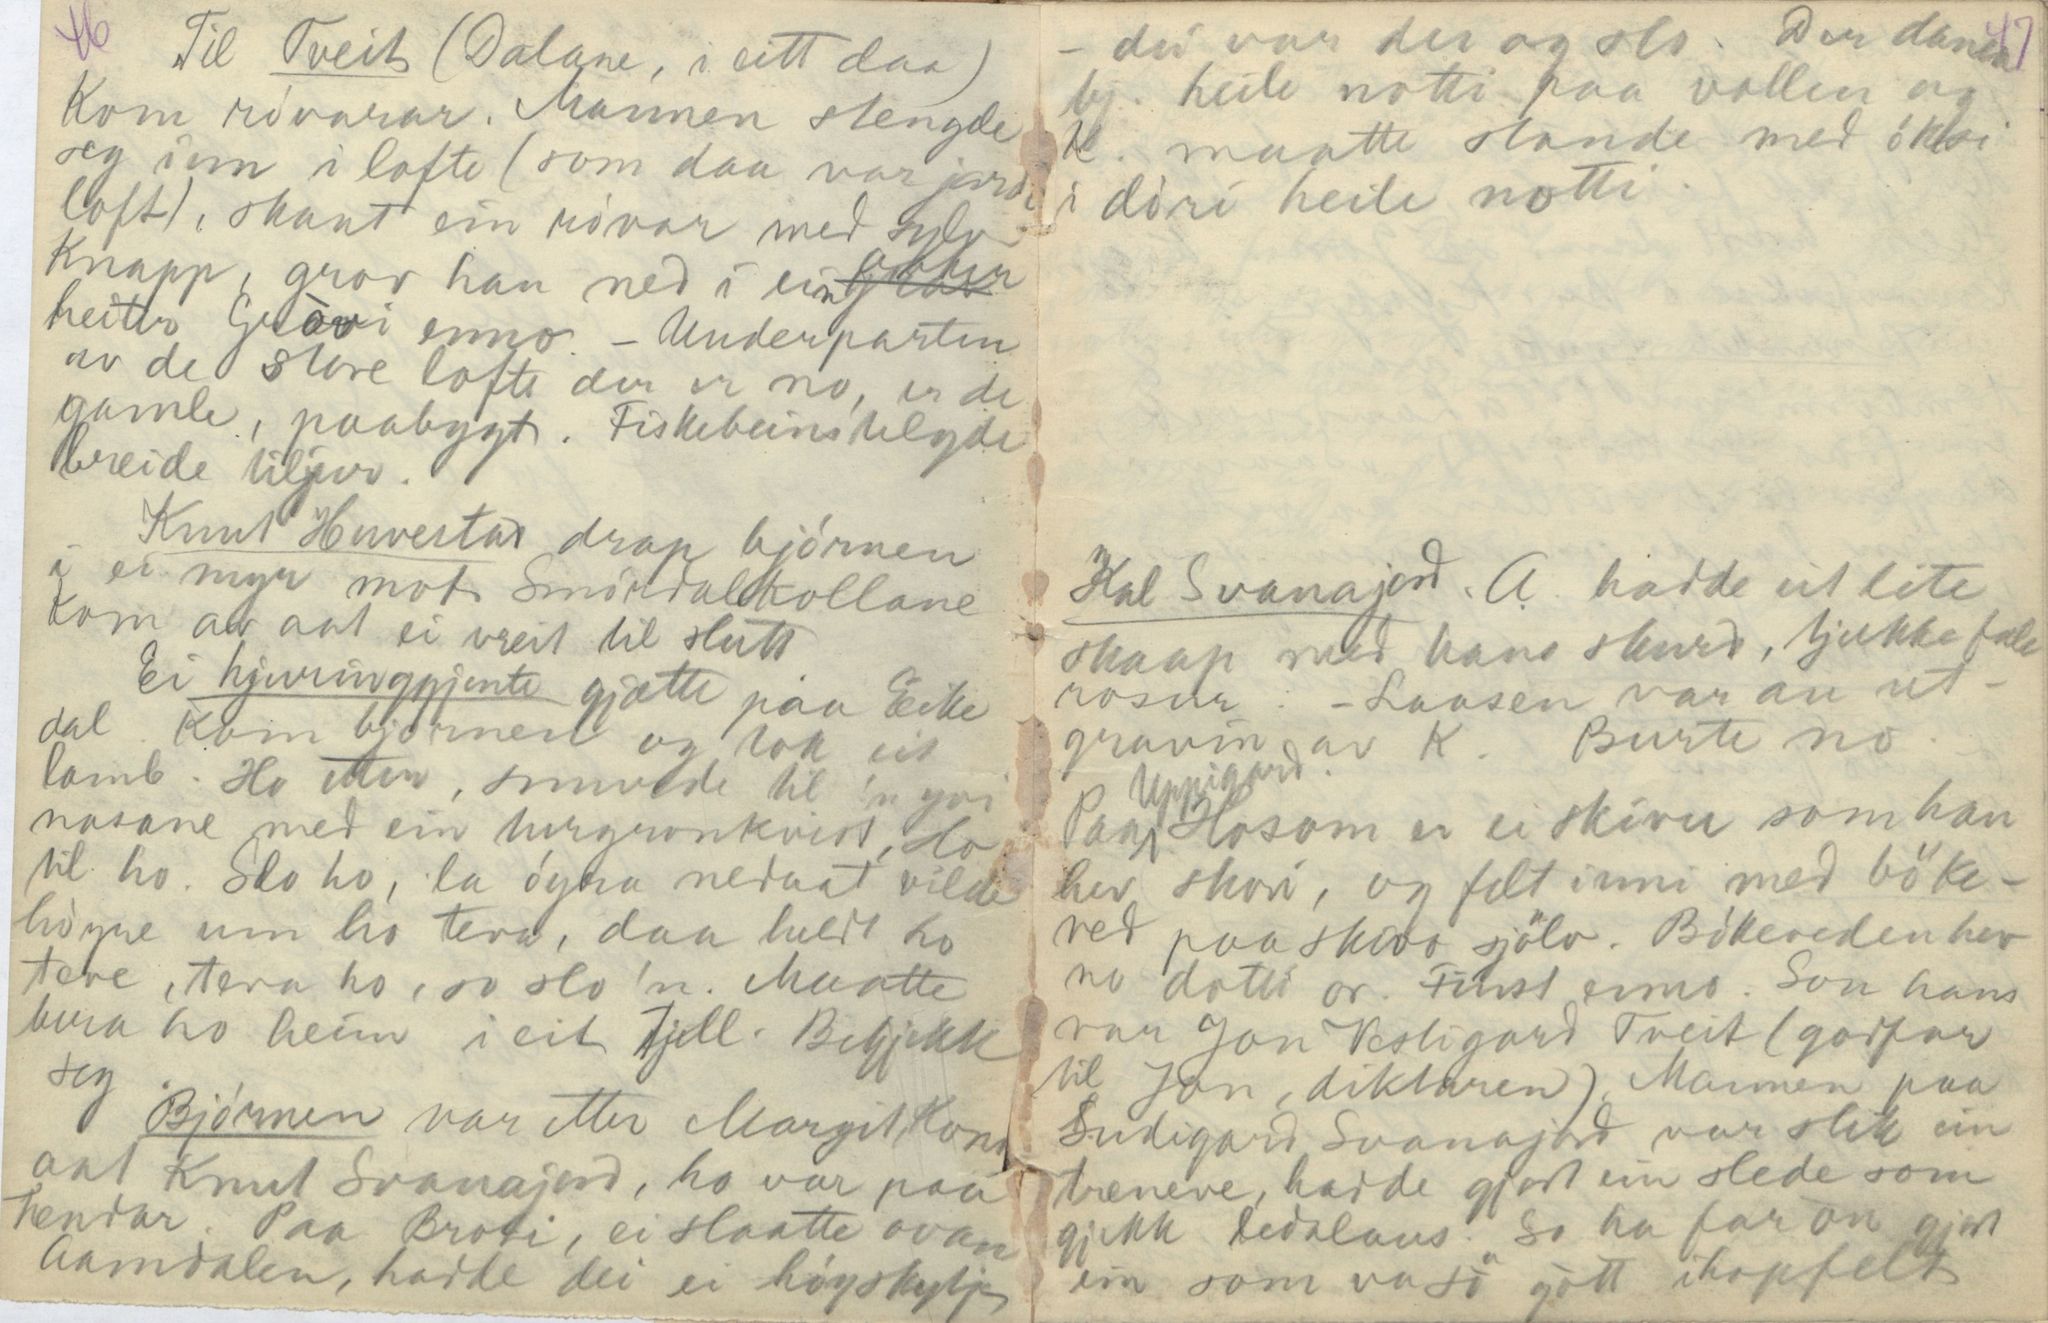 46
Til Tveit (Dalane, i eitt daa)
Kom róvarar. Mannen stengde
seg inn i lofte (som daa var jord-
loft), skaut ein róvar med sylv-
knapp, grov han ned i ein
heiter Gròvi enno. - Underparten
av de store lofte der er no, er de
gamle, paabygt. Fiskebeinstelgde
breide tiljur.
Knut Huvestad drap bjórnen
i ei myr mot Smórdalkollane
Kom av aat ei vreit til slutt
Ei hjuringgjente gjætte paa Eike
dal. Kom bjórnen og tok eit
lamb. Ho etter, smurde til 'n yvi
nasane med ein turgronkvist, slo
til ho. Slo ho, la óyra nedaat vilde
hóyre um ho tera, daa heldt ho
tere, tera ho, so slo 'n. Maatte
bera ho heim i eit fjell. Begjekk
seg.
Bjórnen var etter Margit, Kona
aat Knut Svanajord, ho var paa
hendar. Paa Broti, ei slaatte ovan
Aamdalen, hadde dei ei hóyskykje
47
- dei var der og slo. Der dansa
bj. heile notti paa vollen og
K. maatte stande med óksi
i dóri heile notti.
Kal Svanajord. A. hadde eit lite
skaap med hans skurd, tjukke fele
rosur. - Laasen var au ut-
gravin av K. Burte no.
Uppigard
Paa Hosom er ei skivu som han
hev skori, og felt inni med böke-
ved paa skivo sjölv. Bókeveden hev
no dotti or. Finst enno. Son hans
var Jon Vestigard Tveit (godfar
til Jon, diktaren). Mannen paa
Sudigard Svanajord var slik ein
treneve, hadde gjort ein slede som
gjekk ledalaus. So ha far ön gjort
ein som va sö gött ihopfelt